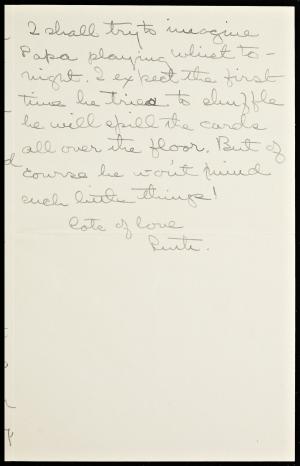 I shall try to imagine
Papa playing whist to-
night. I expect the first
time he tries to shuffle
he will spill the cards
all over the floor. But of
course he won't mind
such little things!
Lots of love
Ruth.